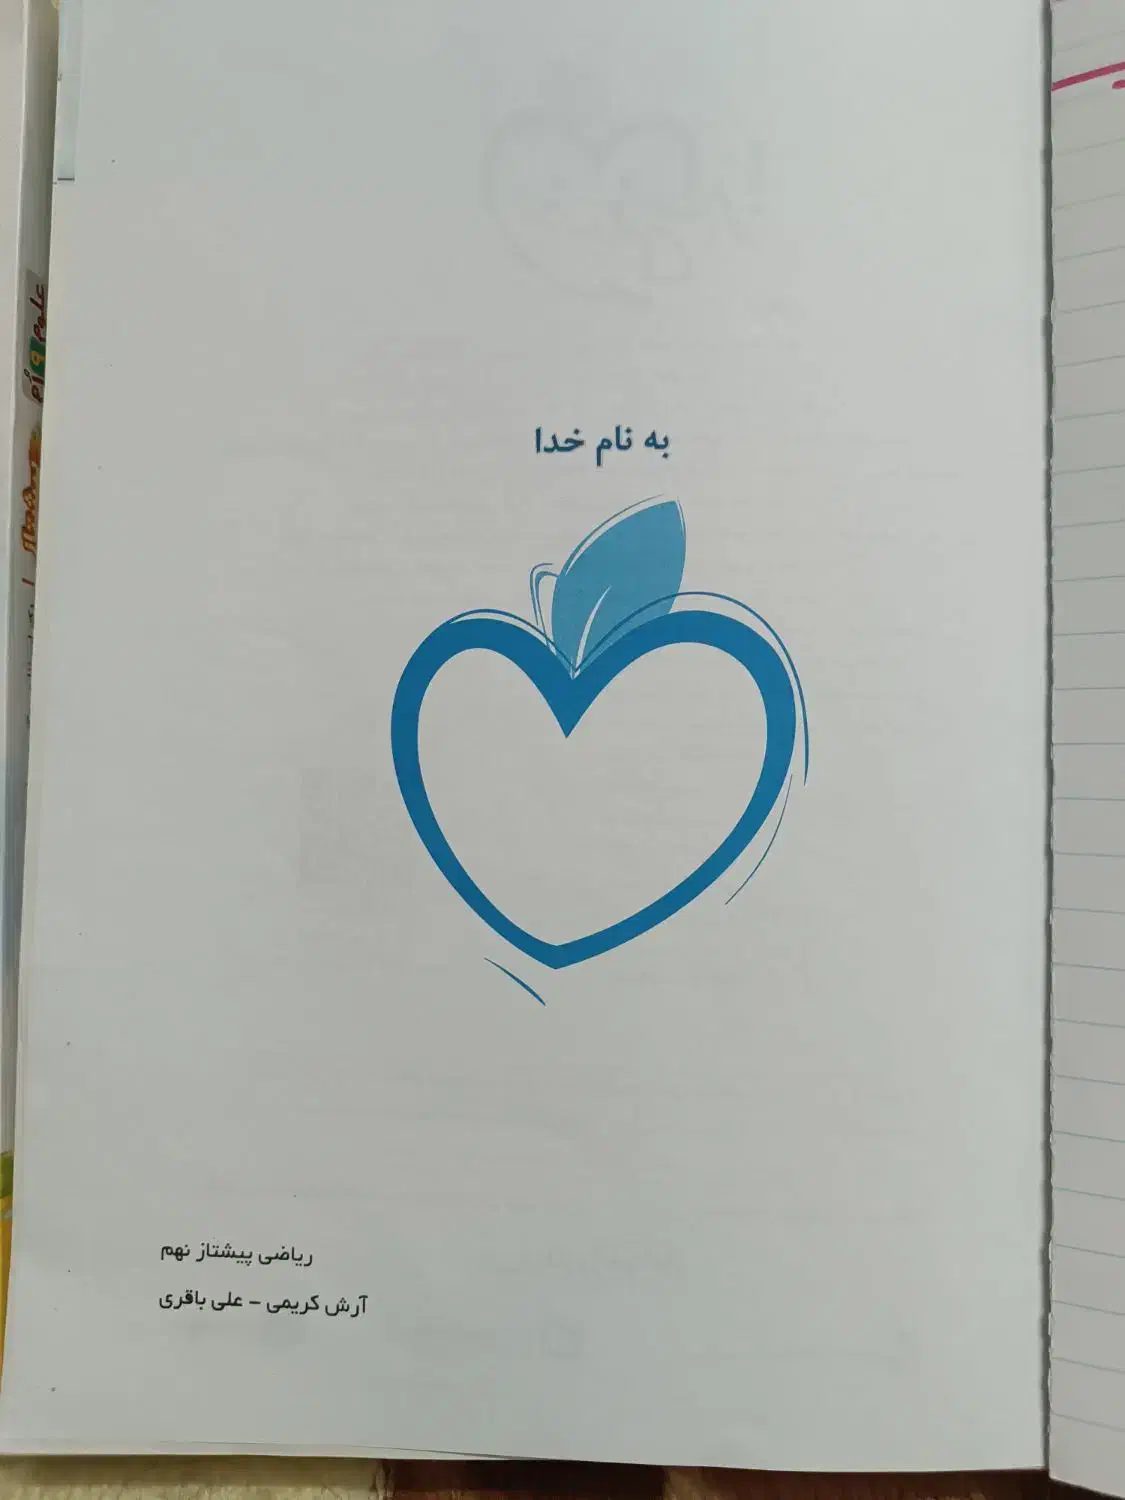 به نام خدا
ریاضی پیشتاز نهم
آرش کریمی - علی باقری
علوم
۹